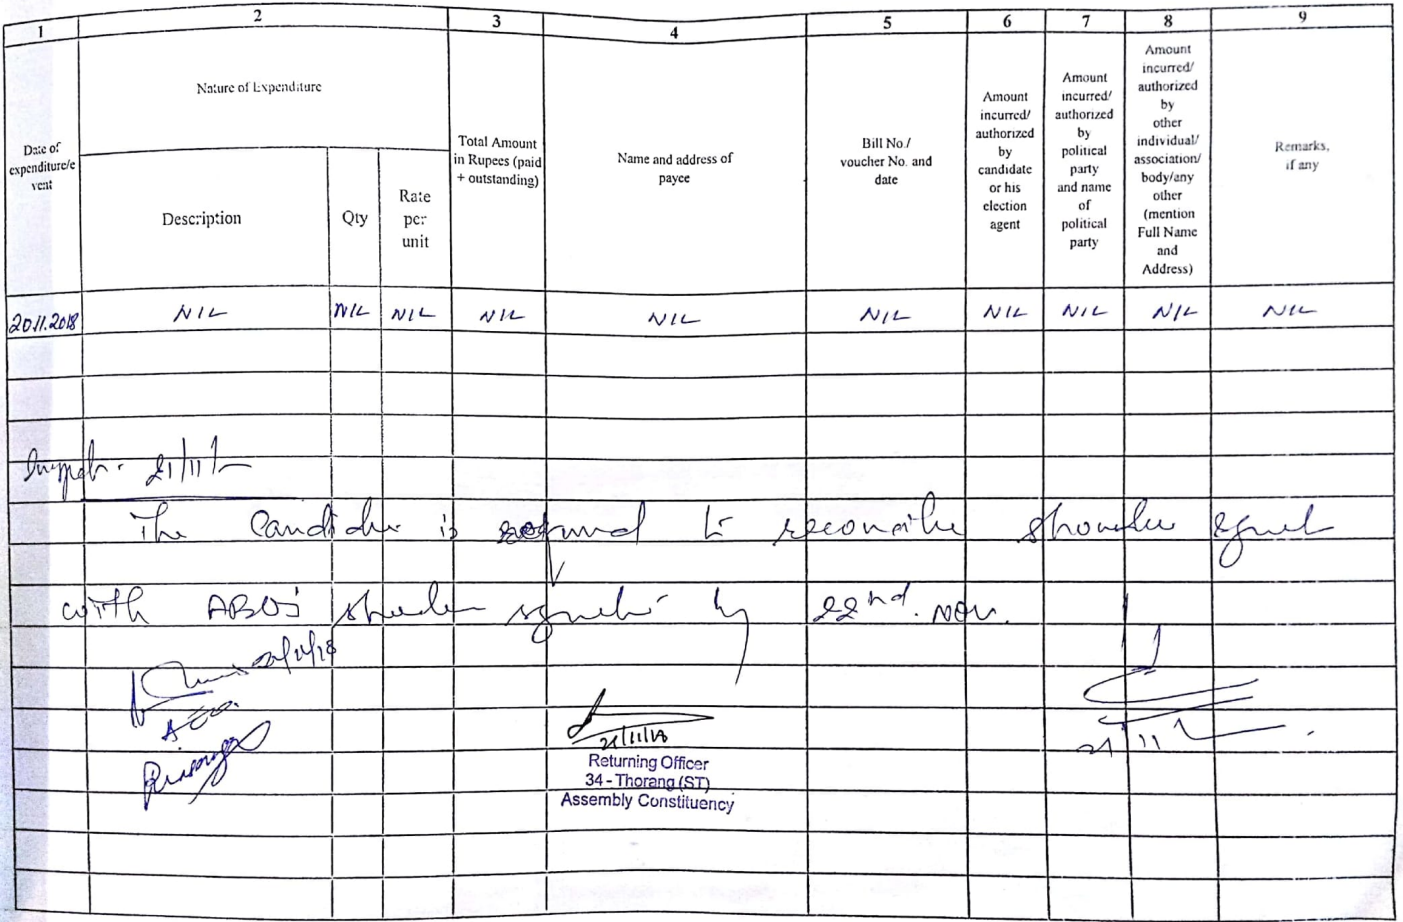 1 2 3 4 5 6 7 8 9
Date of
expenditure/e
vent
Nature of Expenditure
Description
Qty
Rate
per
unit
Total Amount
in Rupees (paid
+ outstanding)
Name and address of
payee
Bill No./
voucher No. and
date
Amount
incurred/
authorized
by
candidate
or his
election
agent
Amount
incurred/
authorized
by
political
party
and name
of
political
party
Amount
incurred/
authorized
by
other
individual/
association/
body/any
other
(mention
Full Name
and
Address)
Remarks,
if any
20.11.2018 NIL NIL NIL NIL NIL NIL NIL NIL NIL NIL
21/11/
The Candidate is to reconcile shadow
with shadow by 22nd. Nov.
21/11/18
Returning Officer
34 - Thorang (ST)
Assembly Constituency
21/11